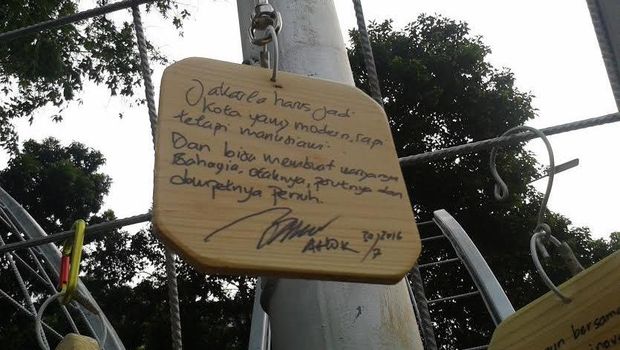 Jakarta harus jadi
kota yang modern, rapi
tetapi manusiawi.
Dan bisa membuat warganya
Bahagia, otaknya, perutnya dan
dompetnya penuh.
AHOK 20/2016
/7
bersama